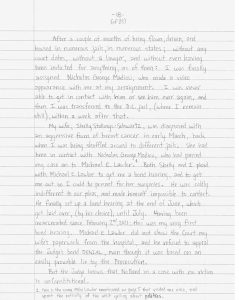 -18-
After a couple of months of being flown, driven, and
housed in numerous jails, in numerous states; without any
court dates, without a lawyer, and without even having
been indicted for anything, as of then! I was finally
assigned Nicholas George Madiou, who made a video
appearance with me at my arraignment. I was never
able to get in contact with him or see him ever again, and
then I was transferred to the D.C. jail, (where I remain
still), within a week after that.
My wife, Shelly Stallings, was diagnosed with
an aggressive form of breast cancer in early March, back
when I was being shuffled around to different jails. She had
been in contact with Nicholas George Madiou, who had passed
my case on to Michael E. Lawlor. Both Shelly and I plead
with Michael E. Lawlor to get me a bond hearing, and to get
me out so I could be present for her surgeries. He was coldly
indifferent to our pleas, and made himself impossible to contact.
He finally set up a bond hearing at the end of June, which
got bust over, (by his choice) until July. Having been
incarcerated since February, 2021, this was my very first
bond hearing. Michael E. Lawlor did not show the Court my
wife's paperwork from the hospital, and he refused to appeal
the Judge's bond DENIAL, even though it was based on an
easily provable lie by the Prosecution.
But the Judge knows that No Bond in a case with no victim
is unConstitutional.